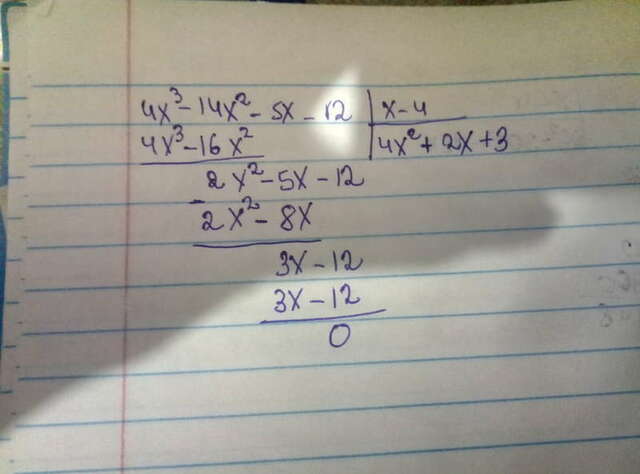 4x³ - 14x² - 5x - 12 | x - 4
4x³ - 16x² | 4x² + 2x + 3
2x² - 5x - 12
-
2x² - 8x
3x - 12
3x - 12
0